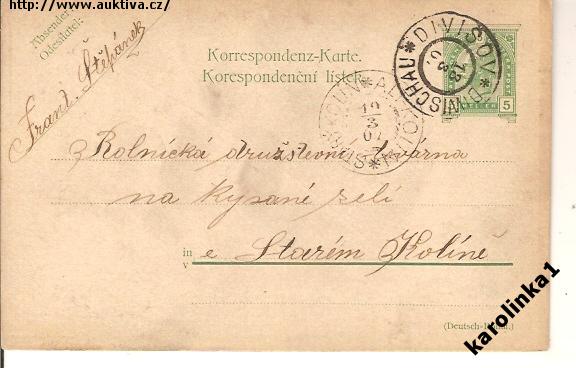 http://www.auktiva.cz/
Absender:
Odesílatel:
Frant. Štěpánek
Korrespondenz-Karte.
Korespondenční lístek.
DIVIŠOV * DIWISCHAU *
5
Rolnická družstevní továrna
na kysané zelí
in
v
e Starém Kolíně
(Deutsch-Böhm.)
karolinka1